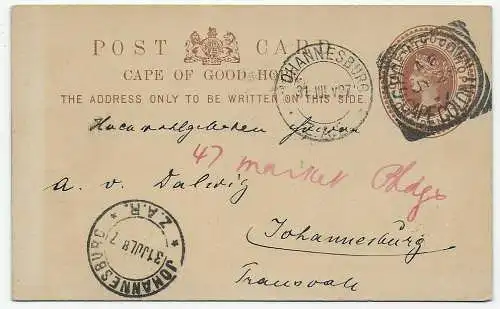 POST CARD
CAPE OF GOOD HOPE
THE ADDRESS ONLY TO BE WRITTEN ON THIS SIDE.
JOHANNESBURG
31 JUL 97
Hochwohlgeboren
47 market Bldgs
a. v. Dalwig
Johannesburg
Transvaal
JOHANNESBURG
Z.A.R.
31 JUL 97